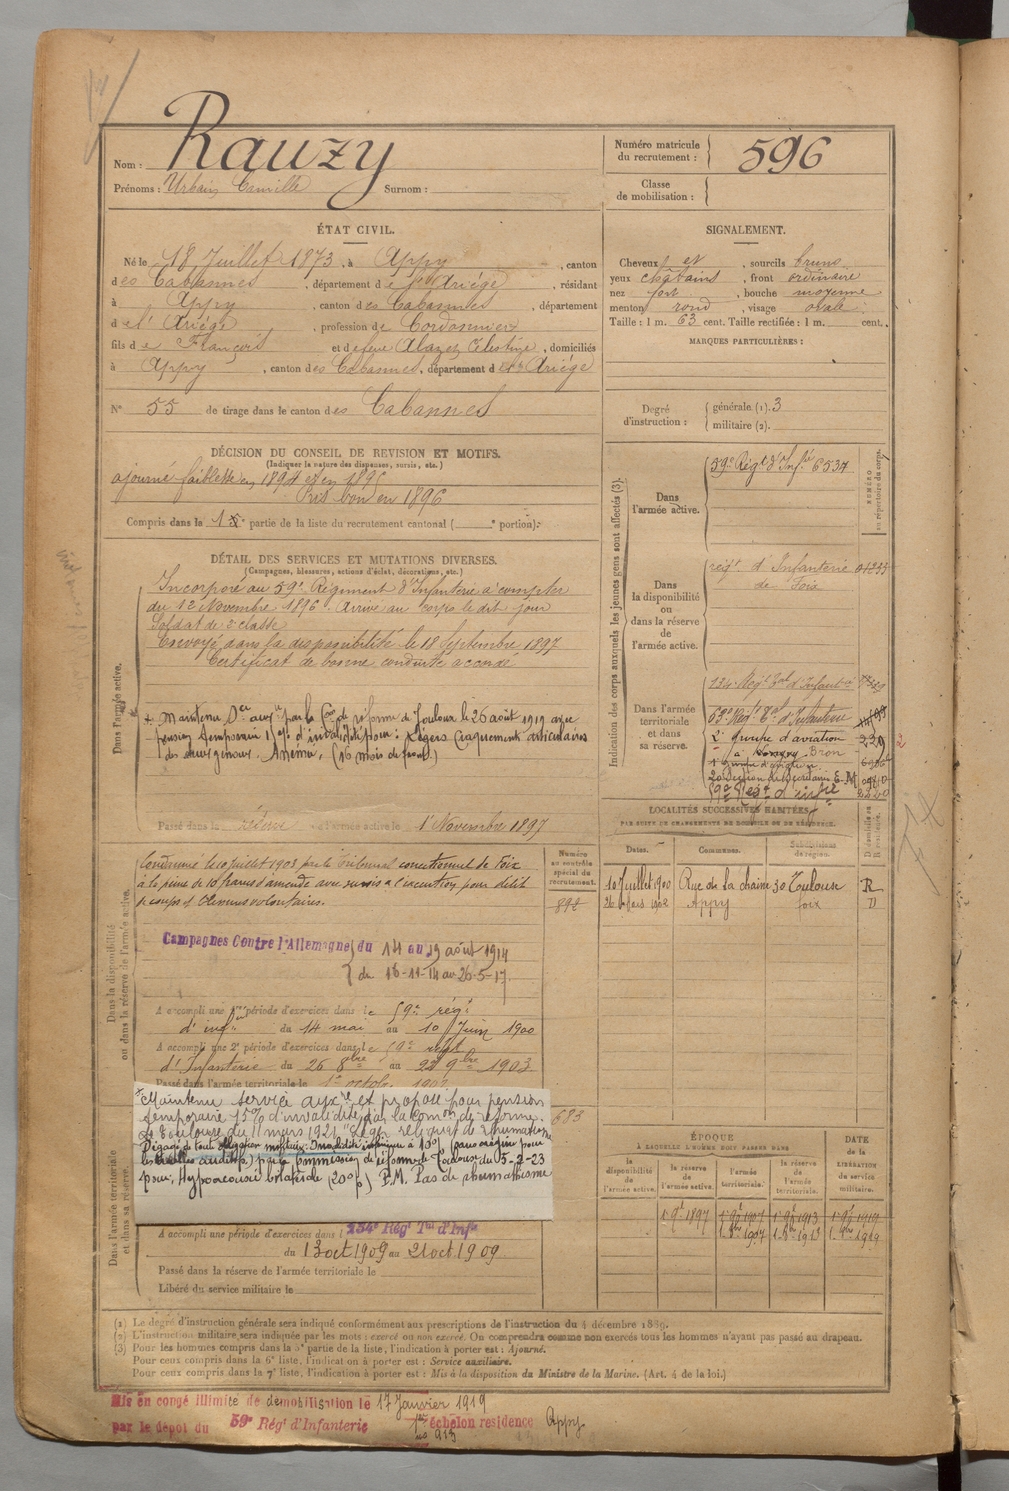 Nom : Rauzy
Prénoms : Urbain Camille Surnom :
Numéro matricule
du recrutement : 596
Classe
de mobilisation :
ÉTAT CIVIL.
Né le 18 Juillet 1873, à Appy, canton
des Cabannes, département de l'Ariège, résidant
à Appy, canton des Cabannes, département
de l'Ariège, profession de Cordonnier
fils de François et de feue Alazet Célestine, domiciliés
à Appy, canton des Cabannes, département de l'Ariège
N° 55 de tirage dans le canton des Cabannes
SIGNALEMENT.
Cheveux et, sourcils bruns
yeux châtains, front ordinaire
nez fort, bouche moyenne
menton rond, visage ovale
Taille : 1 m. 63 cent. Taille rectifiée : 1 m. cent.
MARQUES PARTICULIÈRES :
Degré
d'instruction :
générale (1). 3
militaire (2).
DÉCISION DU CONSEIL DE REVISION ET MOTIFS.
(Indiquer la nature des dispenses, sursis, etc.)
ajourné faiblesse en 1894 et en 1895
Pris bon en 1896
Compris dans la 1e partie de la liste du recrutement cantonal ( e portion).
DÉTAIL DES SERVICES ET MUTATIONS DIVERSES.
(Campagnes, blessures, actions d'éclat, décorations, etc.)
Dans l'armée active.
Incorporé au 59e Régiment d'Infanterie à compter
du 12 Novembre 1896. Arrivé au corps le dit jour
Soldat de 2e classe
Envoyé dans la disponibilité le 18 Septembre 1897
Certificat de bonne conduite accordé
Maintenu Sce auxre par la Con de réforme de Toulouse le 26 août 1919 avec
pension temporaire d'invalidité pour : Légers craquements articulaires
des deux genoux. Anémie. (16 mois de front)
Passé dans la réserve de l'armée active le 1er Novembre 1897
Indication des corps auxquels les jeunes gens sont affectés (3).
NUMÉRO
au répertoire du corps.
Dans
l'armée active.
59e Régt d'Infie 6534
Dans
la disponibilité
ou
dans la réserve
de
l'armée active.
régt d'Infanterie 01255
de Foix
Dans l'armée
territoriale
et dans
sa réserve.
134e Régt Tal d'Infanterie
2e groupe d'aviation
à Bron
1er groupe d'aviation
20 Section de Secrétaires E.M.
59e Régt d'infie
LOCALITÉS SUCCESSIVES HABITÉES
PAR SUITE DE CHANGEMENTS DE DOMICILE OU DE RÉSIDENCE.
Dates. Communes. Subdivisions
de région. D domicile ou
R résidence.
10 Juillet 1900 Rue de la chaine 30 Toulouse R
26 1902 Appy foix D
Dans la disponibilité
ou dans la réserve de l'armée active.
Numéro
au contrôle
spécial du
recrutement.
892
Condamné le 10 Juillet 1903 par le Tribunal correctionnel de Foix
à la peine de 10 francs d'amende avec sursis à l'exécution pour délit
de coups et blessures volontaires.
Campagnes Contre l'Allemagne du 14 au 29 août 1914
du 16-11-14 au 26-5-17.
A accompli une 1re période d'exercices dans le 59e régt
d'infie du 14 mai au 10 Juin 1900
A accompli une 2e période d'exercices dans le 59e régt
d'Infanterie du 26 8bre au 22 9bre 1903
Passé dans l'armée territoriale le 1er octobre
Dans l'armée territoriale
et dans sa réserve.
683
Maintenu service auxre et proposé pour pension
temporaire 15% d'invalidité par la comon de réforme
de Toulouse du 11 mars 1921
Dégagé de toute obligation militaire. Invalidité inférieure à 10%
commission de réforme de Toulouse du 5-2-23
pour, Hypoacousie bilatérale (20%) P.M. Pas de rhumatisme
A accompli une période d'exercices dans l 134e Régt Tal d'Infie
du 13 oct 1909 au 21 oct 1909
Passé dans la réserve de l'armée territoriale le
Libéré du service militaire le
ÉPOQUE
À LAQUELLE L'HOMME DOIT PASSER DANS
DATE
DE LA
LIBÉRATION
DU
service
militaire.
la
disponibilité
de
l'armée active.
la réserve
de
l'armée active.
l'armée
territoriale.
la réserve
de
l'armée
territoriale.
1er 9bre 1897 1er 9bre 1907 1er 9bre 1913 1er 9bre 1919
1er 8bre 1907 1er 8bre 1913 1er 8bre 1919
(1) Le degré d'instruction générale sera indiqué conformément aux prescriptions de l'instruction du 4 décembre 1889.
(2) L'instruction militaire sera indiquée par les mots : exercé ou non exercé. On comprendra comme non exercés tous les hommes n'ayant pas passé au drapeau.
(3) Pour les hommes compris dans la 5e partie de la liste, l'indication à porter est : Ajourné.
Pour ceux compris dans la 6e liste, l'indication à porter est : Service auxiliaire.
Pour ceux compris dans la 7e liste, l'indication à porter est : Mis à la disposition du Ministre de la Marine. (Art. 4 de la loi.)
Mis en congé illimité de démobilisation le 17 Janvier 1919
par le dépôt du 59e Régt d'Infanterie 1er échelon résidence Appy
no 913